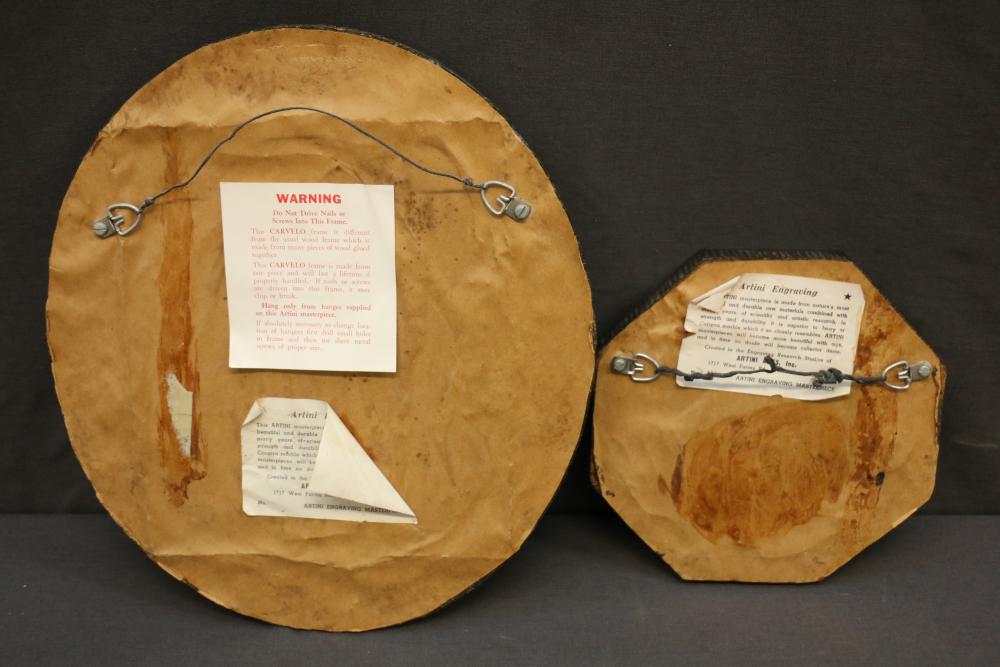 WARNING
Do Not Drive Nails or
Screws Into This Frame.
This CARVELO frame is different
from the usual wood frame which is
made from many pieces of wood glued
together.
This CARVELO frame is made from
one piece and will last a lifetime if
properly handled. If nails or screws
are driven into this frame, it may
chip or break.
Hang only from hanger supplied
on this Artini masterpiece.
If absolutely necessary to change loca-
tion of hangers first drill small holes
in frame and then use sheet metal
screws of proper size.
Artini
This ARTINI masterpiece
beautiful and durable
many years of
strength and
Carrara marble which
masterpieces will be
and in time no
Created in the
1717 West Farms
ARTINI ENGRAVING
Artini Engraving ★
masterpiece is made from nature's most
and durable raw materials combined with
years of scientific and artistic research. In
strength and durability it is superior to Ivory or
Carrara marble which it so closely resembles. ARTINI
masterpieces will become more beautiful with age,
and in time no doubt will become collector items.
Created in the Engraving Research Studios of
ARTINI Inc.
1717 West Farms
ARTINI ENGRAVING MASTERPIECE